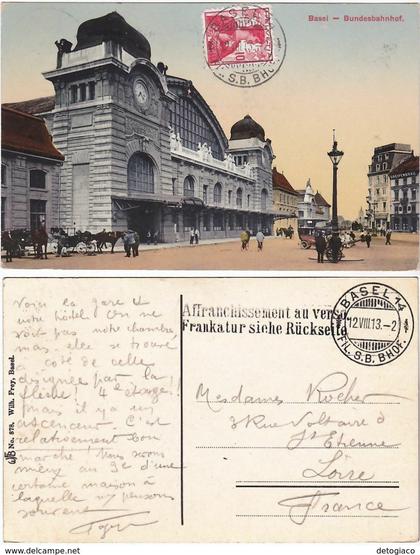 Basel – Bundesbahnhof.
BASEL
S.B. BHOF.
Voici la gare et
notre hôtel. On ne
voit pas notre chambre,
mais elle se trouve
à côté de celle
désignée par la
flèche! 4e étage!
mais il y a un
ascenseur. C'est
relativement bon
marché! Nous serons
mieux au 3e d'une
certaine maison à
laquelle ns pensons
souvent
W B No. 878. Wilh. Frey, Basel.
Affranchissement au verso
Frankatur siehe Rückseite
BASEL 14
12.VIII.13.-2
FIL. S.B. BHOF.
Mesdames Rocher
3 Rue Voltaire
St Etienne
Loire
France
© delcampe.net